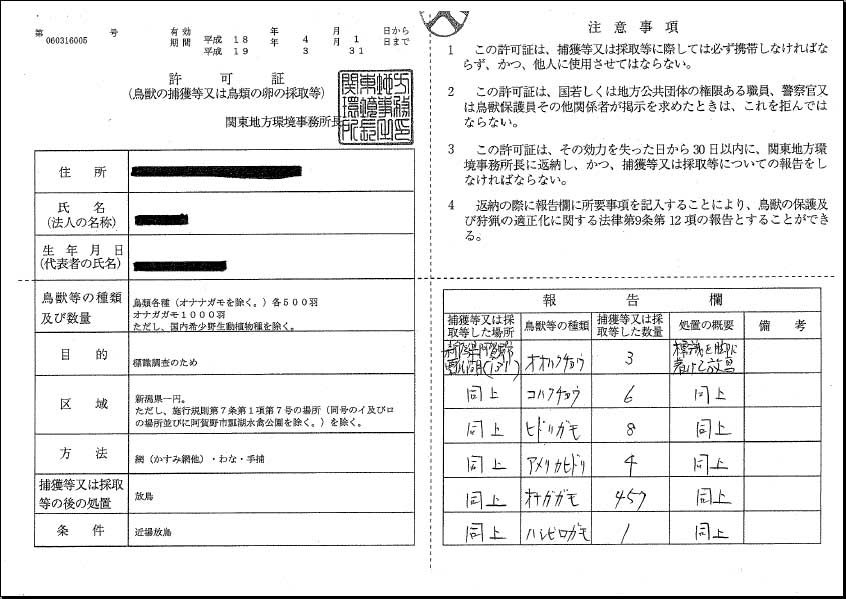 第 060316005 号
有効期間 平成 18 年 4 月 1 日から
平成 19 年 3 月 31 日まで
許可証
(鳥獣の捕獲等又は鳥類の卵の採取等)
関東地方環境事務所長
住所
氏名
(法人の名称)
生年月日
(代表者の氏名)
鳥獣等の種類
及び数量
鳥類各種(オナナガモを除く。)各500羽
オナガガモ1000羽
ただし、国内希少野生動植物種を除く。
目的
標識調査のため
区域
新潟県一円。
ただし、施行規則第7条第1項第7号の場所(同号のイ及びロ
の場所並びに阿賀野市瓢湖水禽公園を除く。)を除く。
方法
網(かすみ網他)・わな・手捕
捕獲等又は採取
等の後の処置
放鳥
条件
近場放鳥
注意事項
1 この許可証は、捕獲等又は採取等に際しては必ず携帯しなければな
らず、かつ、他人に使用させてはならない。
2 この許可証は、国若しくは地方公共団体の権限ある職員、警察官又
は鳥獣保護員その他関係者が掲示を求めたときは、これを拒んでは
ならない。
3 この許可証は、その効力を失った日から30日以内に、関東地方環
境事務所長に返納し、かつ、捕獲等又は採取等についての報告をし
なければならない。
4 返納の際に報告欄に所要事項を記入することにより、鳥獣の保護及
び狩猟の適正化に関する法律第9条第12項の報告とすることができ
る。
報告欄
捕獲等又は採取等した場所 鳥獣等の種類 捕獲等又は採取等した数量 処置の概要 備考
オオハクチョウ 3 標識を脚に着けて放鳥
同上 コハクチョウ 6 同上
同上 ヒドリガモ 8 同上
同上 アメリカヒドリ 4 同上
同上 オナガガモ 457 同上
同上 ハシビロガモ 1 同上